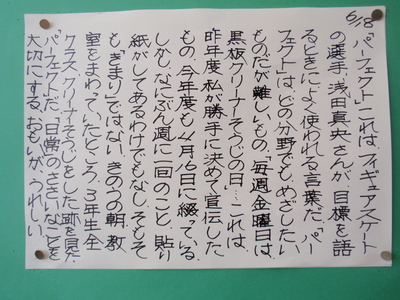 6/18
「パーフェクト」これは、フィギュアスケート
の選手、浅田真央さんが、目標を語
るときによく使われる言葉だ。「パー
フェクト」は、どの分野でもめざしたい
ものだが難しいもの。「毎週金曜日は
黒板クリーナーそうじの日」~これは、
昨年度私が勝手に決めて宣伝した
もの。今年度も4月16日に綴っている。
しかし、なにぶん週に一回のこと、貼り
紙がしてあるわけでもなし、そもそ
も「きまり」ではない。きのうの朝、教
室をまわっていたところ、3年生全
クラス、クリーナーそうじをした跡を見た。
「パーフェクト」だ。「日常のささいなことを
大切にする」おもいが、うれしい。